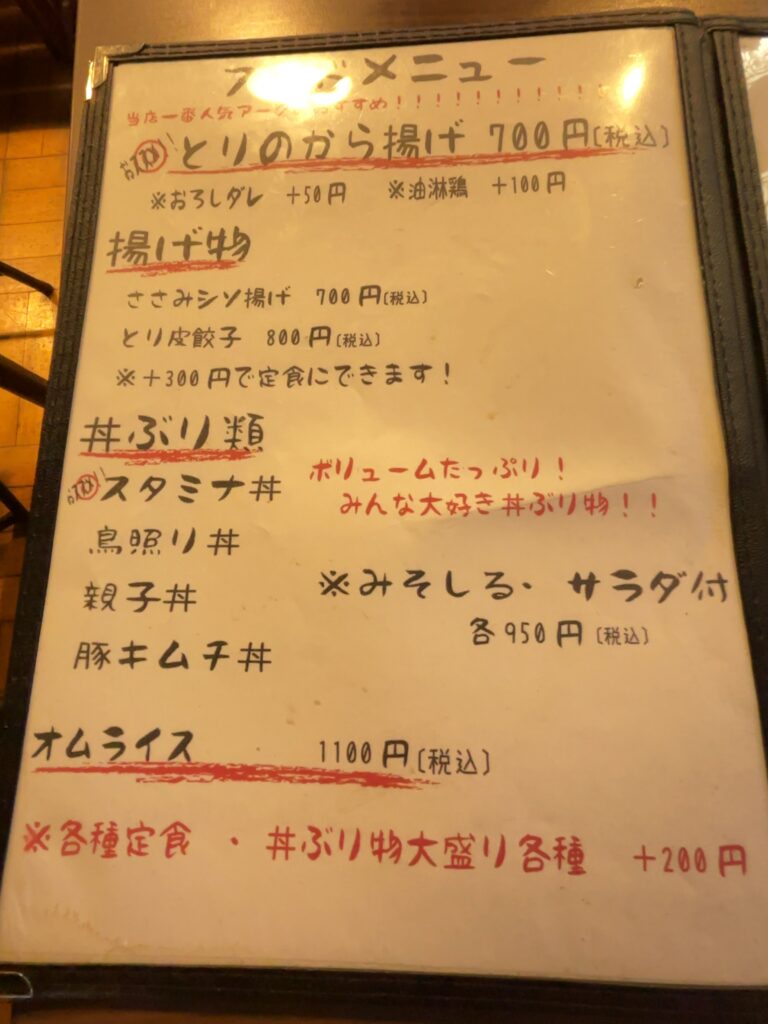 メニュー
当店一番人気
おススメ!! とりのから揚げ 700円〔税込〕
※おろしダレ +50円 ※油淋鶏 +100円
揚げ物
ささみシソ揚げ 700円〔税込〕
とり皮餃子 800円〔税込〕
※+300円で定食にできます!
丼ぶり類
おススメ!! スタミナ丼
ボリュームたっぷり!
みんな大好き丼ぶり物!!
鳥照り丼
親子丼
豚キムチ丼
※みそしる・サラダ付
各950円〔税込〕
オムライス 1100円〔税込〕
※各種定食・丼ぶり物大盛り各種 +200円